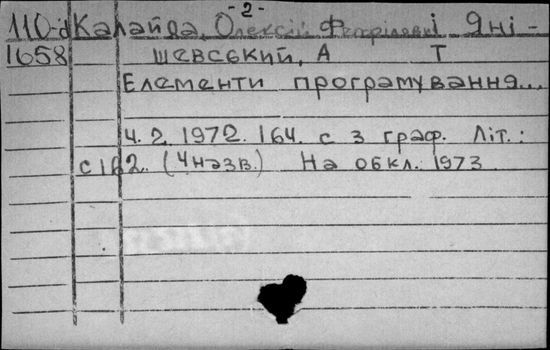 -2-
110-d Калайда, Олексій Феофілович і Яні-
1658 шевський, А Т
Елементи програмування...
Ч. 2. 1972. 164. с з граф. Літ.:
с 162. (4 назв.) На обкл. 1973